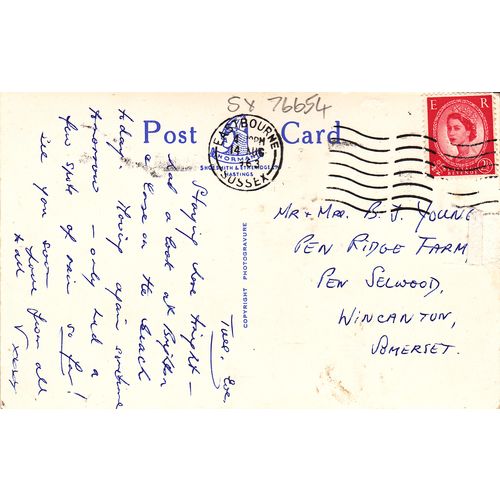 SX 76654
Post Card
EASTBOURNE
PM
14 AUG
SUSSEX
NORMAN
SHOESMITH & ETHERIDGE LTD
HASTINGS
E R
REVENUE
COPYRIGHT PHOTOGRAVURE
Tues. Eve.
Staying here tonight -
had a look at Brighton
& Close on the beach
today. Having again
tomorrow - only had a
few spots of rain so far!
see you soon
love from all
to all
Mr & Mrs. B. J. YOUNG
PEN RIDGE FARM
PEN SELWOOD,
WINCANTON,
SOMERSET.